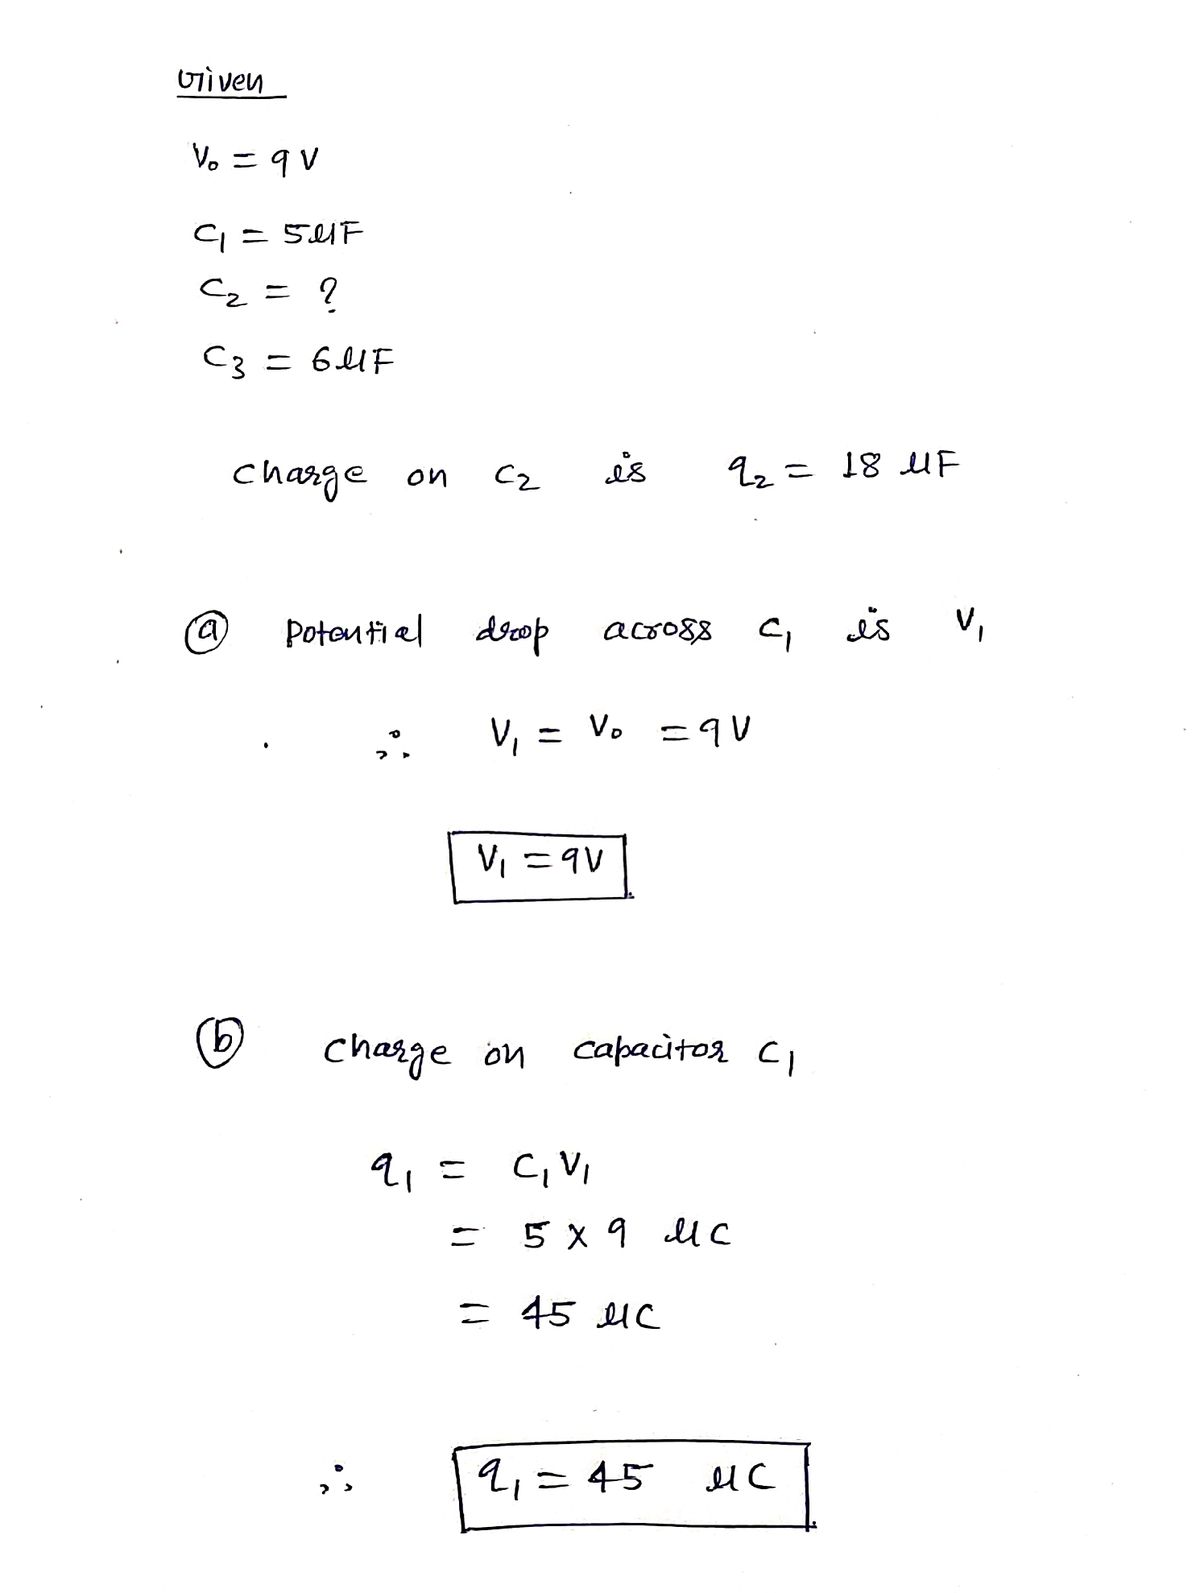 Given
V₀ = 9V
C₁ = 5μF
C₂ = ?
C₃ = 6μF
charge on C₂ is q₂ = 18 μF
(a) Potential drop across C₁ is V₁
∴ V₁ = V₀ = 9V
V₁ = 9V
(b) charge on capacitor C₁
q₁ = C₁V₁
= 5 x 9 μC
= 45 μC
∴ q₁ = 45 μC